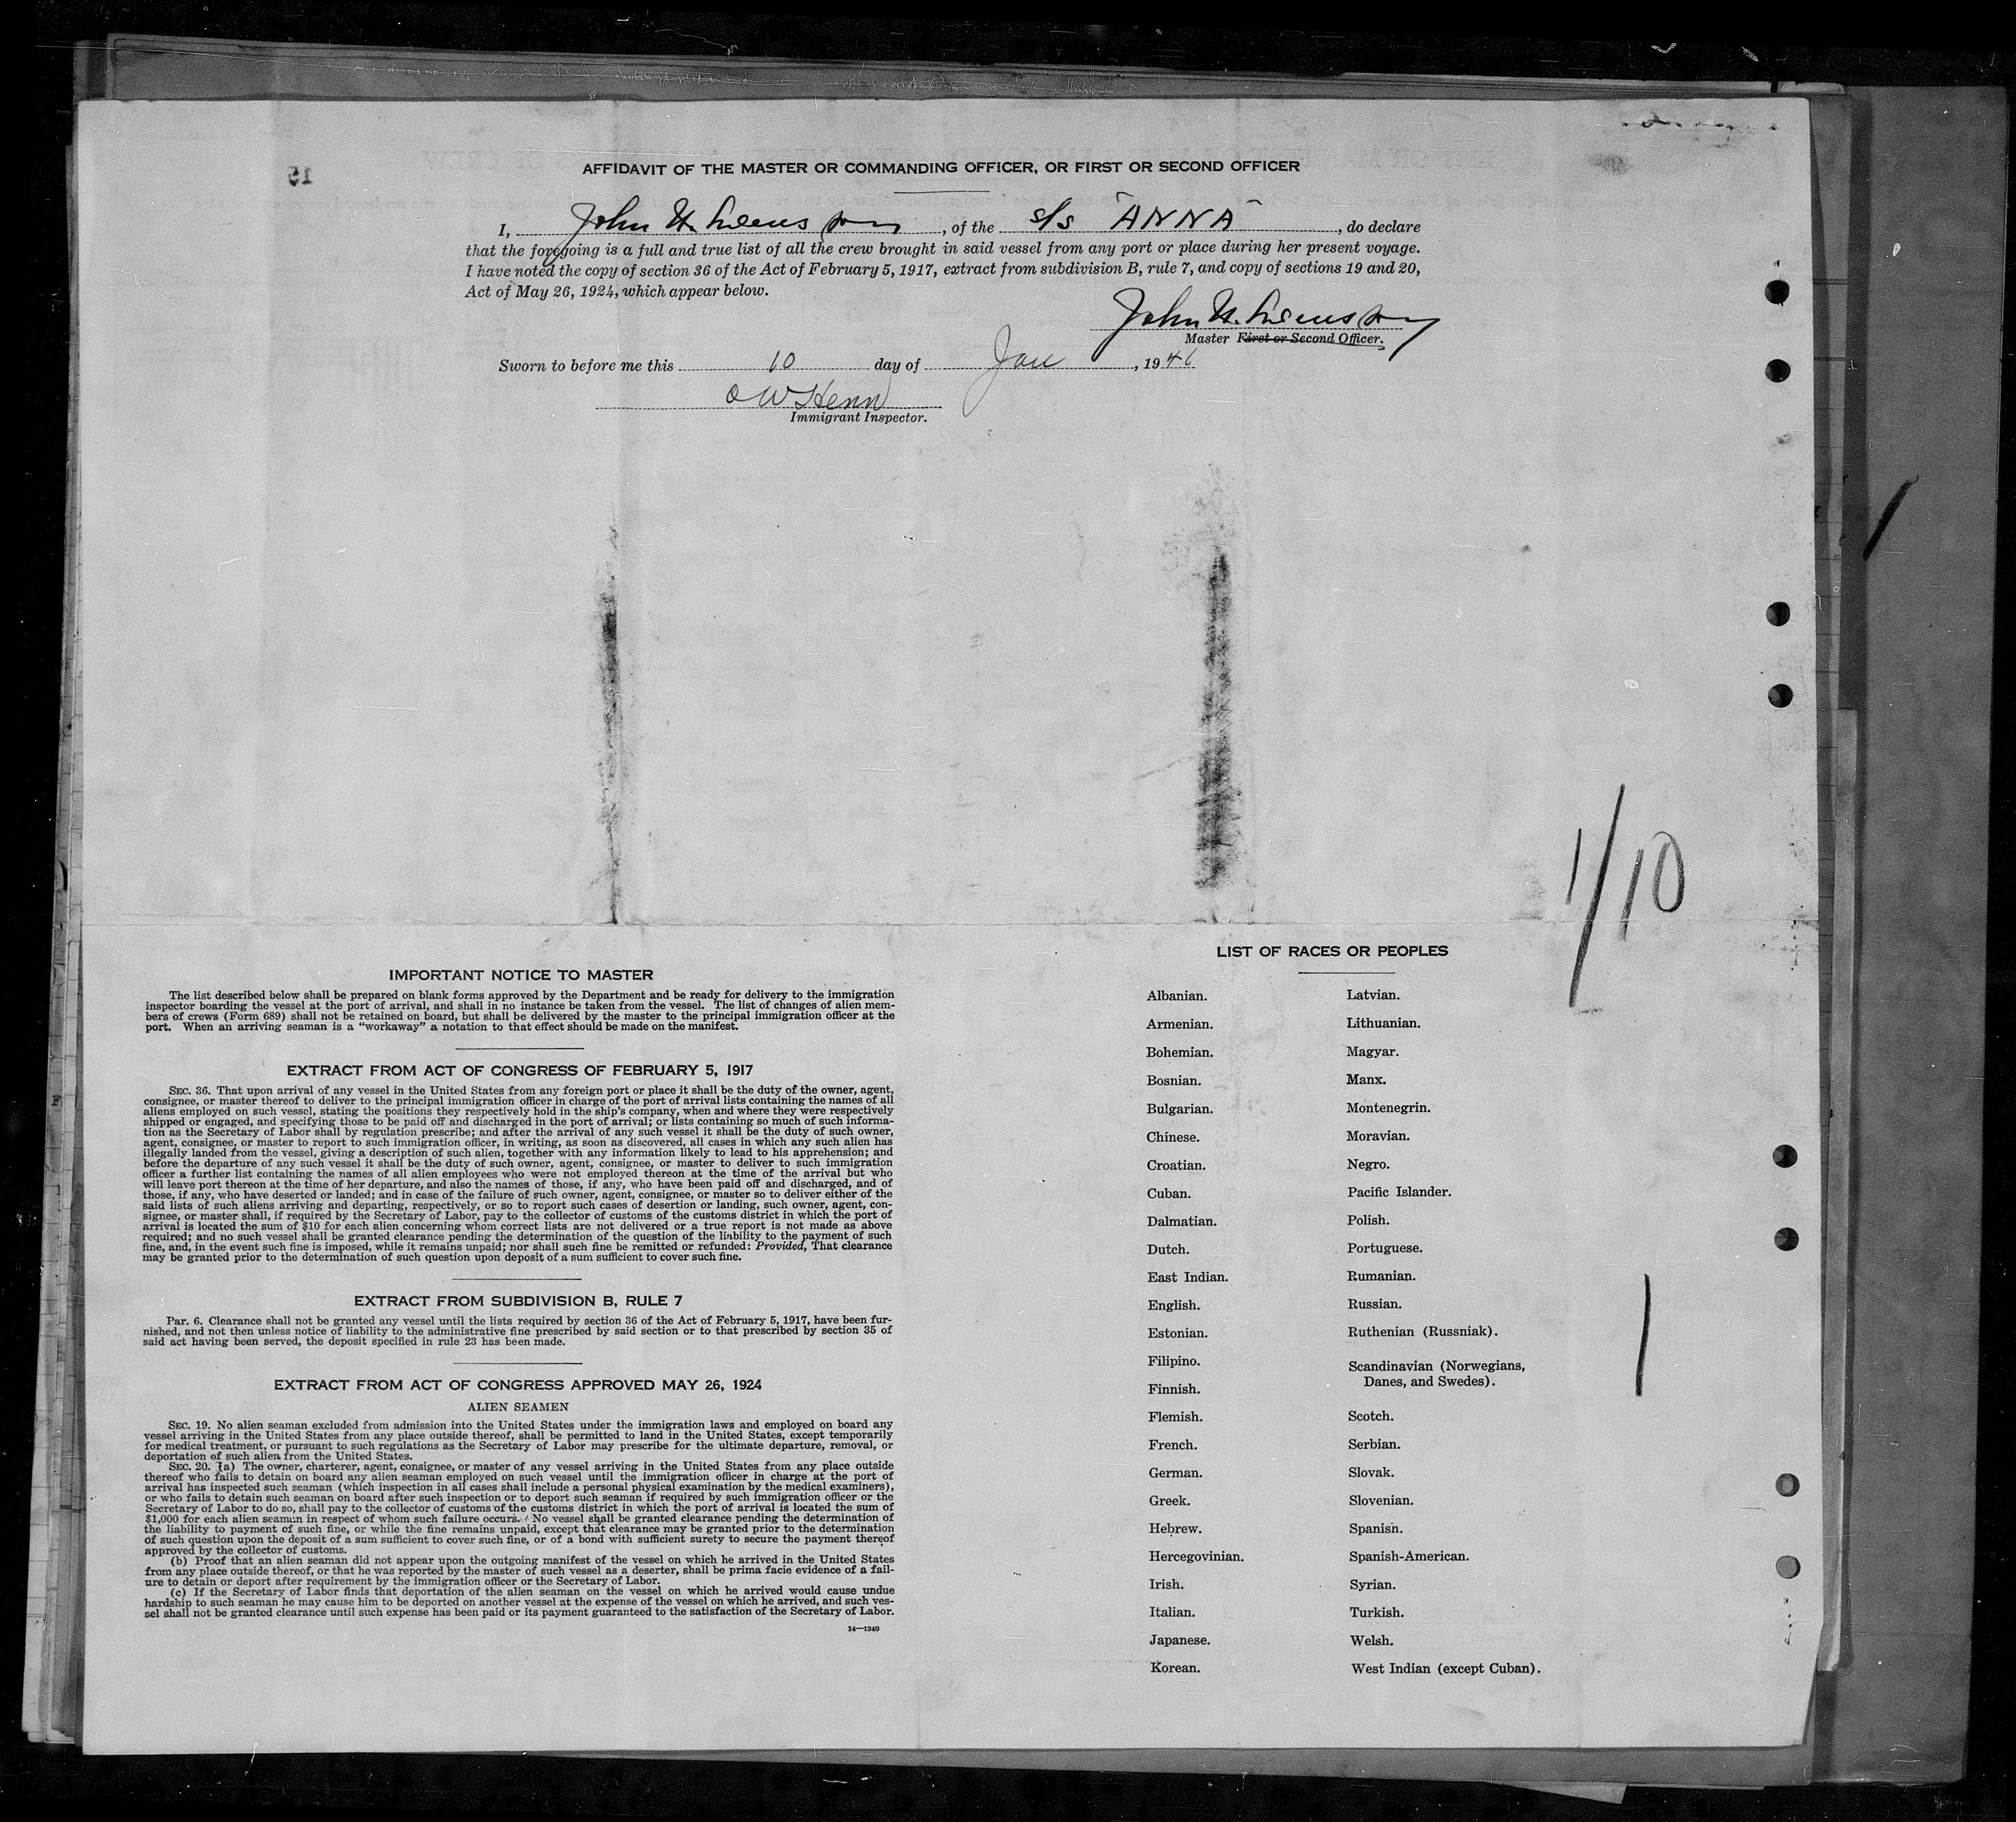 15
AFFIDAVIT OF THE MASTER OR COMMANDING OFFICER, OR FIRST OR SECOND OFFICER
I, John H. , of the S/S "ANNA", do declare
that the foregoing is a full and true list of all the crew brought in said vessel from any port or place during her present voyage.
I have noted the copy of section 36 of the Act of February 5, 1917, extract from subdivision B, rule 7, and copy of sections 19 and 20,
Act of May 26, 1924, which appear below.
John H.
Master First or Second Officer.
Sworn to before me this 10 day of Jan, 1946
O W Henn
Immigrant Inspector.
1/10
IMPORTANT NOTICE TO MASTER
The list described below shall be prepared on blank forms approved by the Department and be ready for delivery to the immigration
inspector boarding the vessel at the port of arrival, and shall in no instance be taken from the vessel. The list of changes of alien mem-
bers of crews (Form 689) shall not be retained on board, but shall be delivered by the master to the principal immigration officer at the
port. When an arriving seaman is a "workaway" a notation to that effect should be made on the manifest.
EXTRACT FROM ACT OF CONGRESS OF FEBRUARY 5, 1917
SEC. 36. That upon arrival of any vessel in the United States from any foreign port or place it shall be the duty of the owner, agent,
consignee, or master thereof to deliver to the principal immigration officer in charge of the port of arrival lists containing the names of all
aliens employed on such vessel, stating the positions they respectively hold in the ship's company, when and where they were respectively
shipped or engaged, and specifying those to be paid off and discharged in the port of arrival; or lists containing so much of such informa-
tion as the Secretary of Labor shall by regulation prescribe; and after the arrival of any such vessel it shall be the duty of such owner,
agent, consignee, or master to report to such immigration officer, in writing, as soon as discovered, all cases in which any such alien has
illegally landed from the vessel, giving a description of such alien, together with any information likely to lead to his apprehension; and
before the departure of any such vessel it shall be the duty of such owner, agent, consignee, or master to deliver to such immigration
officer a further list containing the names of all alien employees who were not employed thereon at the time of the arrival but who
will leave port thereon at the time of her departure, and also the names of those, if any, who have been paid off and discharged, and of
those, if any, who have deserted or landed; and in case of the failure of such owner, agent, consignee, or master so to deliver either of the
said lists of such aliens arriving and departing, respectively, or so to report such cases of desertion or landing, such owner, agent, con-
signee, or master shall, if required by the Secretary of Labor, pay to the collector of customs of the customs district in which the port of
arrival is located the sum of $10 for each alien concerning whom correct lists are not delivered or a true report is not made as above
required; and no such vessel shall be granted clearance pending the determination of the question of the liability to the payment of such
fine, and, in the event such fine is imposed, while it remains unpaid; nor shall such fine be remitted or refunded: Provided, That clearance
may be granted prior to the determination of such question upon deposit of a sum sufficient to cover such fine.
EXTRACT FROM SUBDIVISION B, RULE 7
Par. 6. Clearance shall not be granted any vessel until the lists required by section 36 of the Act of February 5, 1917, have been fur-
nished, and not then unless notice of liability to the administrative fine prescribed by said section or to that prescribed by section 35 of
said act having been served, the deposit specified in rule 23 has been made.
EXTRACT FROM ACT OF CONGRESS APPROVED MAY 26, 1924
ALIEN SEAMEN
SEC. 19. No alien seaman excluded from admission into the United States under the immigration laws and employed on board any
vessel arriving in the United States from any place outside thereof, shall be permitted to land in the United States, except temporarily
for medical treatment, or pursuant to such regulations as the Secretary of Labor may prescribe for the ultimate departure, removal, or
deportation of such alien from the United States.
SEC. 20. (a) The owner, charterer, agent, consignee, or master of any vessel arriving in the United States from any place outside
thereof who fails to detain on board any alien seaman employed on such vessel until the immigration officer in charge at the port of
arrival has inspected such seaman (which inspection in all cases shall include a personal physical examination by the medical examiners),
or who fails to detain such seaman on board after such inspection or to deport such seaman if required by such immigration officer or the
Secretary of Labor to do so, shall pay to the collector of customs of the customs district in which the port of arrival is located the sum of
$1,000 for each alien seaman in respect of whom such failure occurs. No vessel shall be granted clearance pending the determination of
the liability to payment of such fine, or while the fine remains unpaid, except that clearance may be granted prior to the determination
of such question upon the deposit of a sum sufficient to cover such fine, or of a bond with sufficient surety to secure the payment thereof
approved by the collector of customs.
(b) Proof that an alien seaman did not appear upon the outgoing manifest of the vessel on which he arrived in the United States
from any place outside thereof, or that he was reported by the master of such vessel as a deserter, shall be prima facie evidence of a fail-
ure to detain or deport after requirement by the immigration officer or the Secretary of Labor.
(c) If the Secretary of Labor finds that deportation of the alien seaman on the vessel on which he arrived would cause undue
hardship to such seaman he may cause him to be deported on another vessel at the expense of the vessel on which he arrived, and such ves-
sel shall not be granted clearance until such expense has been paid or its payment guaranteed to the satisfaction of the Secretary of Labor.
14—1240
LIST OF RACES OR PEOPLES
Albanian.
Armenian.
Bohemian.
Bosnian.
Bulgarian.
Chinese.
Croatian.
Cuban.
Dalmatian.
Dutch.
East Indian.
English.
Estonian.
Filipino.
Finnish.
Flemish.
French.
German.
Greek.
Hebrew.
Hercegovinian.
Irish.
Italian.
Japanese.
Korean.
Latvian.
Lithuanian.
Magyar.
Manx.
Montenegrin.
Moravian.
Negro.
Pacific Islander.
Polish.
Portuguese.
Rumanian.
Russian.
Ruthenian (Russniak).
Scandinavian (Norwegians,
Danes, and Swedes).
Scotch.
Serbian.
Slovak.
Slovenian.
Spanish.
Spanish-American.
Syrian.
Turkish.
Welsh.
West Indian (except Cuban).